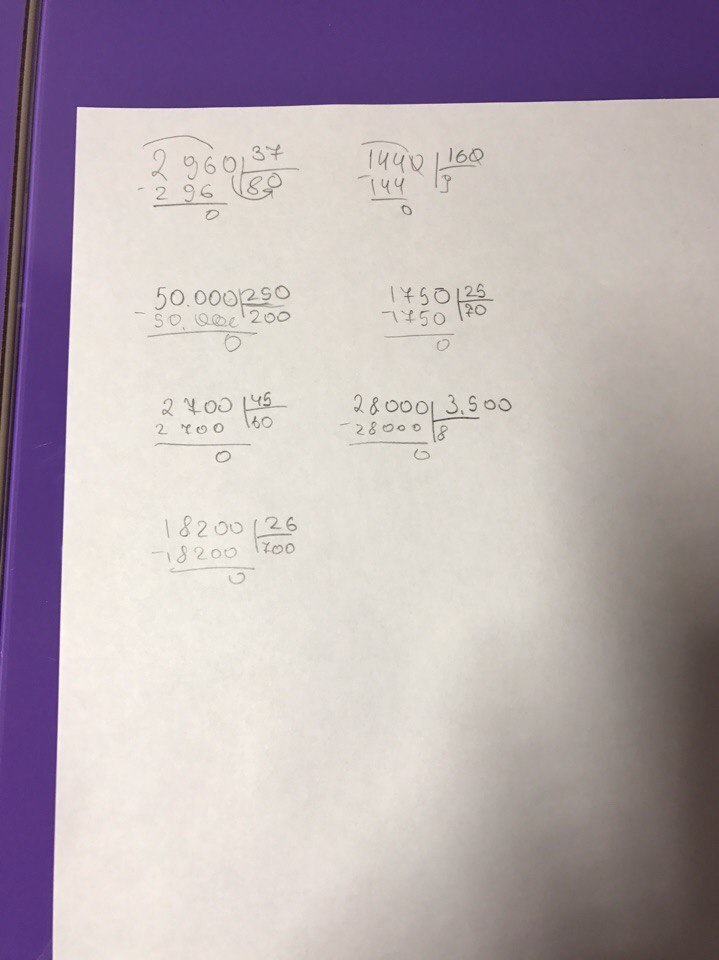 2960 37 1440 160
- 296 80 - 144 9
0 0
50.000 250 1750 25
- 50.000 200 - 1750 70
0 0
2700 45 28000 3.500
2700 60 - 28000 8
0 0
18200 26
- 18200 700
0